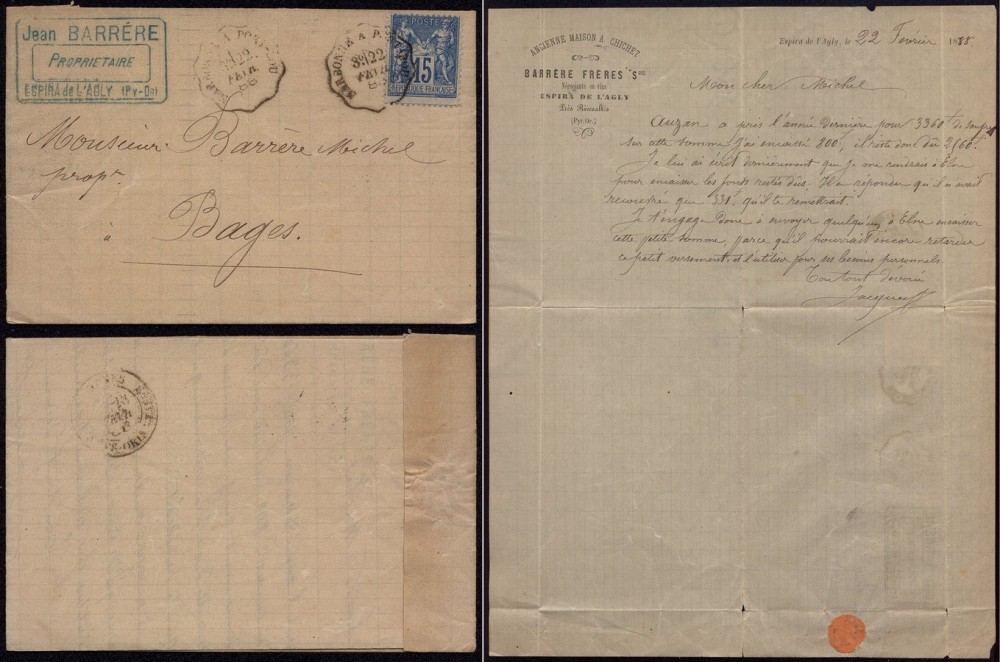 Jean BARRÈRE
PROPRIETAIRE
ESPIRA de L'AGLY (Py-Os)
NARBONNE A
22
NARBONNE A P
22
POSTE
15
REPUBLIQUE FRANCAISE
Monsieur Barrère Michel
propre
à
Bages.
ANCIENNE MAISON A. CHICHET
BARRÈRE FRÈRES Srs
Négociants en vins
ESPIRA DE L'AGLY
Près Rivesaltes
(Pyr. Or.)
Espira de l'Agly, le 22 Février 1888
Mon cher Michel
Auzan a pris l'année dernière pour 3360f de
sur cette somme j'ai encaissé 800f, il reste donc dû 2160.
Je lui ai écrit dernièrement que je me rendrais à Elne
pour encaisser les fonds restés dûs. Il a répondu qu'il n'avait
que 331f qu'il te remettrait.
Je t'engage donc à envoyer quelqu'un à Elne encaisser
cette petite somme, parce qu'il pourrait encore retarder
ce petit versement, et l'utiliser pour ses besoins personnels.
Ton tout dévoué
Jacques